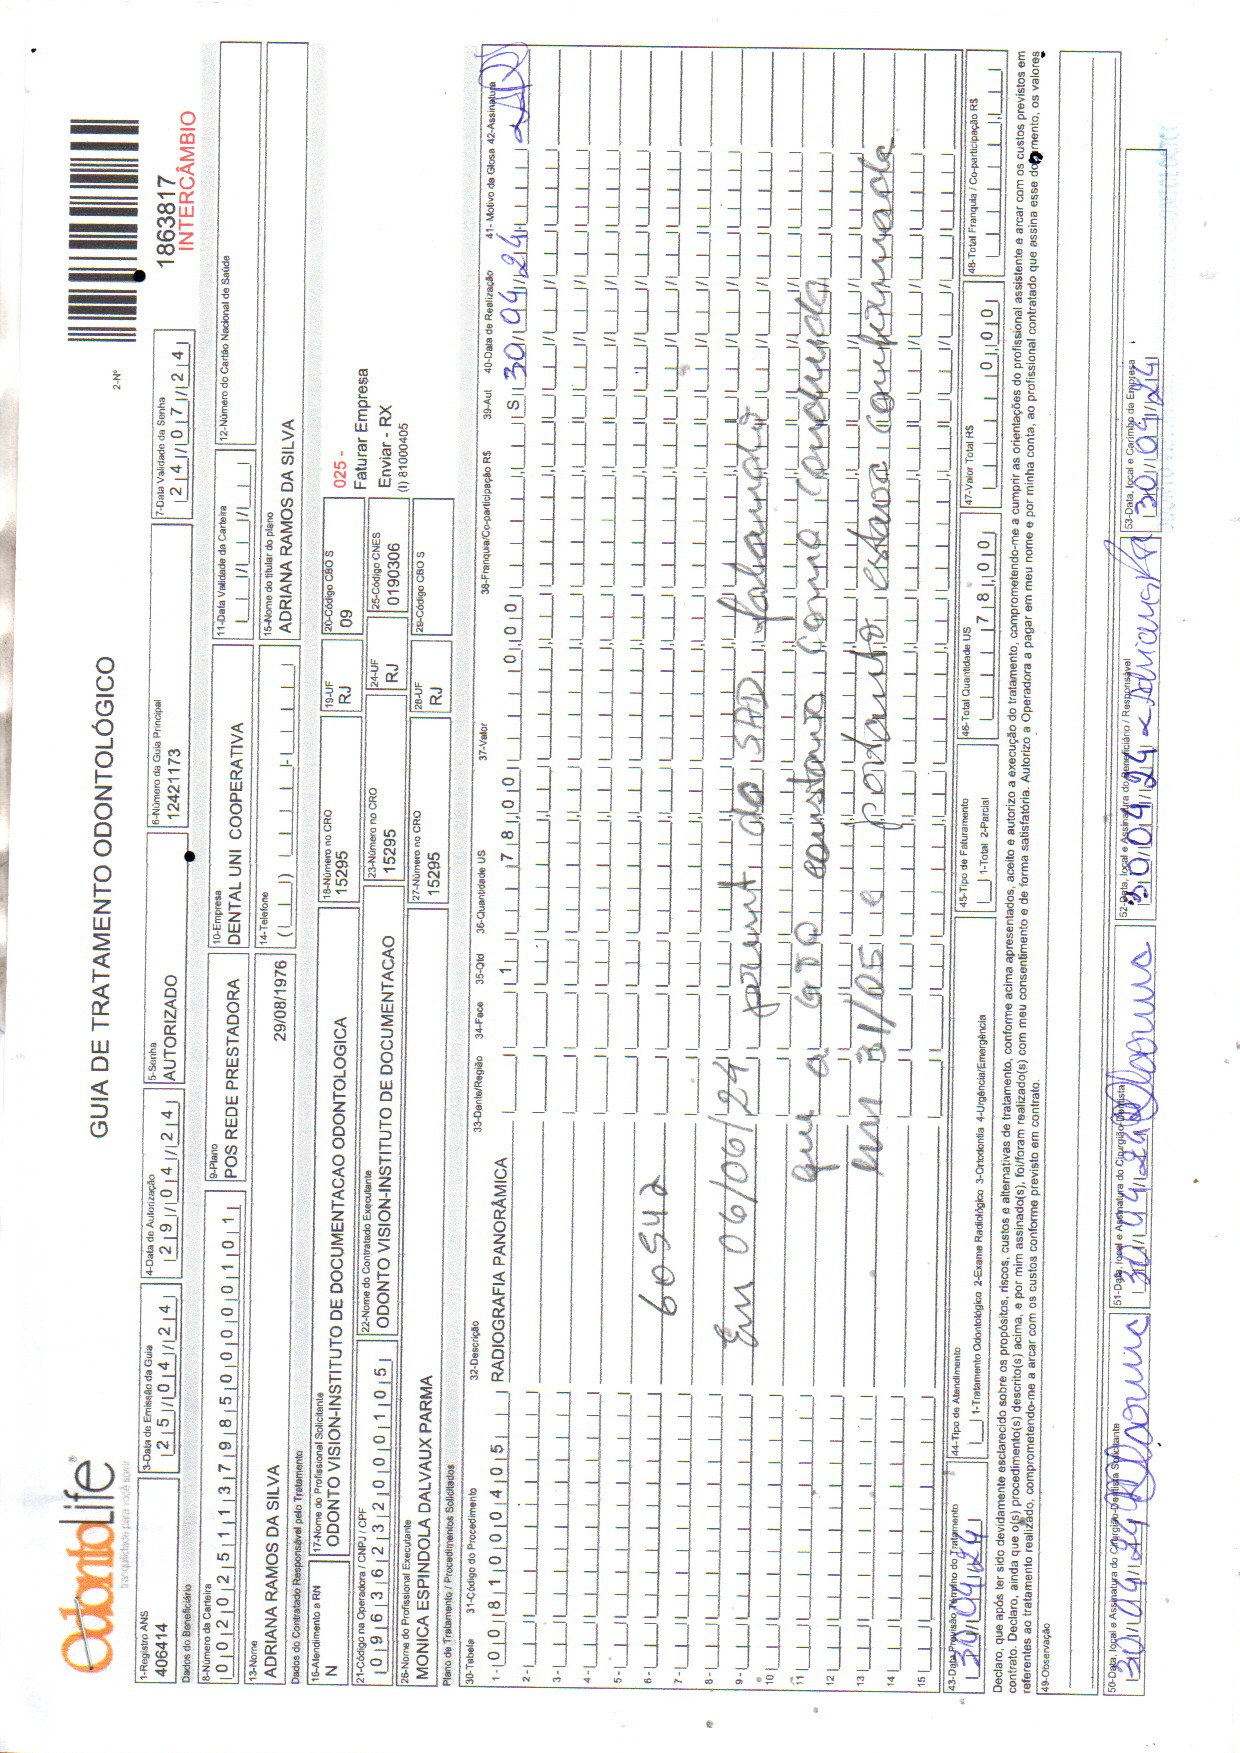 OdontoLife®
tranquilidade para você sorrir
GUIA DE TRATAMENTO ODONTOLÓGICO
2-Nº
1863817
INTERCÂMBIO
1-Registro ANS
406414
3-Data de Emissão da Guia
25/04/24
4-Data de Autorização
29/04/24
5-Senha
AUTORIZADO
6-Número da Guia Principal
12421173
7-Data Validade da Senha
24/07/24
Dados do Beneficiário
8-Número da Carteira
00202511379850000101
9-Plano
POS REDE PRESTADORA
10-Empresa
DENTAL UNI COOPERATIVA
11-Data Validade da Carteira
12-Número do Cartão Nacional de Saúde
13-Nome
ADRIANA RAMOS DA SILVA
29/08/1976
14-Telefone
15-Nome do titular do plano
ADRIANA RAMOS DA SILVA
Dados do Contratado Responsável pelo Tratamento
16-Atendimento a RN
N
17-Nome do Profissional Solicitante
ODONTO VISION-INSTITUTO DE DOCUMENTACAO ODONTOLOGICA
18-Número no CRO
15295
19-UF
RJ
20-Código CBO S
09
025 -
Faturar Empresa
Enviar - RX
(I) 81000405
21-Código na Operadora / CNPJ / CPF
09636232000105
22-Nome do Contratado Executante
ODONTO VISION-INSTITUTO DE DOCUMENTACAO
23-Número no CRO
15295
24-UF
RJ
25-Código CNES
0190306
26-Nome do Profissional Executante
MONICA ESPINDOLA DALVAUX PARMA
27-Número no CRO
15295
28-UF
RJ
29-Código CBO S
Plano de Tratamento / Procedimentos Solicitados
30-Tabela 31-Código do Procedimento 32-Descrição 33-Dente/Região 34-Face 35-Qtd 36-Quantidade US 37-Valor 38-Franquia/Co-participação R$ 39-Aut 40-Data de Realização 41- Motivo da Glosa 42-Assinatura
1 - 00 81000405 RADIOGRAFIA PANORÂMICA 1 78,00 0,00 S 30/04/24
2 -
3 -
4 -
5 -
6 - 60542
7 -
8 -
9 - Em 06/06/24 do SAD
10
11 que a GTO constava como concluida
12
13 em 31/05 e portanto estava confirmada
14
15
43-Data Previsão Término do Tratamento
30/04/24
44-Tipo de Atendimento
1-Tratamento Odontológico 2-Exame Radiológico 3-Ortodontia 4-Urgência/Emergência
45-Tipo de Faturamento
1-Total 2-Parcial
46-Total Quantidade US
78,00
47-Valor Total R$
0,00
48-Total Franquia / Co-participação R$
Declaro, que após ter sido devidamente esclarecido sobre os propósitos, riscos, custos e alternativas de tratamento, conforme acima apresentados, aceito e autorizo a execução do tratamento, comprometendo-me a cumprir as orientações do profissional assistente e arcar com os custos previstos em
contrato. Declaro, ainda que o(s) procedimento(s) descrito(s) acima, e por mim assinado(s), foi/foram realizado(s) com meu consentimento e de forma satisfatória. Autorizo a Operadora a pagar em meu nome e por minha conta, ao profissional contratado que assina esse documento, os valores
referentes ao tratamento realizado, comprometendo-me a arcar com os custos conforme previsto em contrato.
49-Observação
50-Data, local e Assinatura do Cirurgião-Dentista Solicitante
30/04/24
51-Data, local e Assinatura do Cirurgião-Dentista
30/04/24
52-Data, local e Assinatura do Beneficiário / Responsável
30/04/24
53-Data, local e Carimbo da Empresa
30/04/24